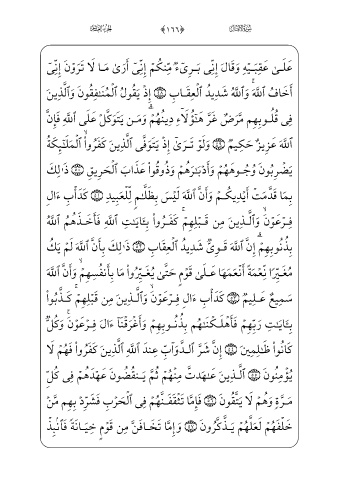 سورة الأنفال ﴿١٦٦﴾ الجزء العاشر
عَلَىٰ عَقِبَيۡهِ وَقَالَ إِنِّي بَرِيٓءٞ مِّنكُمۡ إِنِّيٓ أَرَىٰ مَا لَا تَرَوۡنَ إِنِّيٓ
أَخَافُ ٱللَّهَۚ وَٱللَّهُ شَدِيدُ ٱلۡعِقَابِ ٤٨ إِذۡ يَقُولُ ٱلۡمُنَٰفِقُونَ وَٱلَّذِينَ
فِي قُلُوبِهِم مَّرَضٌ غَرَّ هَٰٓؤُلَآءِ دِينُهُمۡۗ وَمَن يَتَوَكَّلۡ عَلَى ٱللَّهِ فَإِنَّ
ٱللَّهَ عَزِيزٌ حَكِيمٞ ٤٩ وَلَوۡ تَرَىٰٓ إِذۡ يَتَوَفَّى ٱلَّذِينَ كَفَرُواْ ٱلۡمَلَٰٓئِكَةُ
يَضۡرِبُونَ وُجُوهَهُمۡ وَأَدۡبَٰرَهُمۡ وَذُوقُواْ عَذَابَ ٱلۡحَرِيقِ ٥٠ ذَٰلِكَ
بِمَا قَدَّمَتۡ أَيۡدِيكُمۡ وَأَنَّ ٱللَّهَ لَيۡسَ بِظَلَّٰمٖ لِّلۡعَبِيدِ ٥١ كَدَأۡبِ ءَالِ
فِرۡعَوۡنَ وَٱلَّذِينَ مِن قَبۡلِهِمۡۚ كَفَرُواْ بِـَٔايَٰتِ ٱللَّهِ فَأَخَذَهُمُ ٱللَّهُ
بِذُنُوبِهِمۡۚ إِنَّ ٱللَّهَ قَوِيّٞ شَدِيدُ ٱلۡعِقَابِ ٥٢ ذَٰلِكَ بِأَنَّ ٱللَّهَ لَمۡ يَكُ
مُغَيِّرٗا نِّعۡمَةً أَنۡعَمَهَا عَلَىٰ قَوۡمٍ حَتَّىٰ يُغَيِّرُواْ مَا بِأَنفُسِهِمۡ وَأَنَّ ٱللَّهَ
سَمِيعٌ عَلِيمٞ ٥٣ كَدَأۡبِ ءَالِ فِرۡعَوۡنَ وَٱلَّذِينَ مِن قَبۡلِهِمۡۚ كَذَّبُواْ
بِـَٔايَٰتِ رَبِّهِمۡ فَأَهۡلَكۡنَٰهُم بِذُنُوبِهِمۡ وَأَغۡرَقۡنَآ ءَالَ فِرۡعَوۡنَۚ وَكُلّٞ
كَانُواْ ظَٰلِمِينَ ٥٤ إِنَّ شَرَّ ٱلدَّوَآبِّ عِندَ ٱللَّهِ ٱلَّذِينَ كَفَرُواْ فَهُمۡ لَا
يُؤۡمِنُونَ ٥٥ ٱلَّذِينَ عَٰهَدتَّ مِنۡهُمۡ ثُمَّ يَنقُضُونَ عَهۡدَهُمۡ فِي كُلِّ
مَرَّةٖ وَهُمۡ لَا يَتَّقُونَ ٥٦ فَإِمَّا تَثۡقَفَنَّهُمۡ فِي ٱلۡحَرۡبِ فَشَرِّدۡ بِهِم مَّنۡ
خَلۡفَهُمۡ لَعَلَّهُمۡ يَذَّكَّرُونَ ٥٧ وَإِمَّا تَخَافَنَّ مِن قَوۡمٍ خِيَانَةٗ فَٱنۢبِذۡ